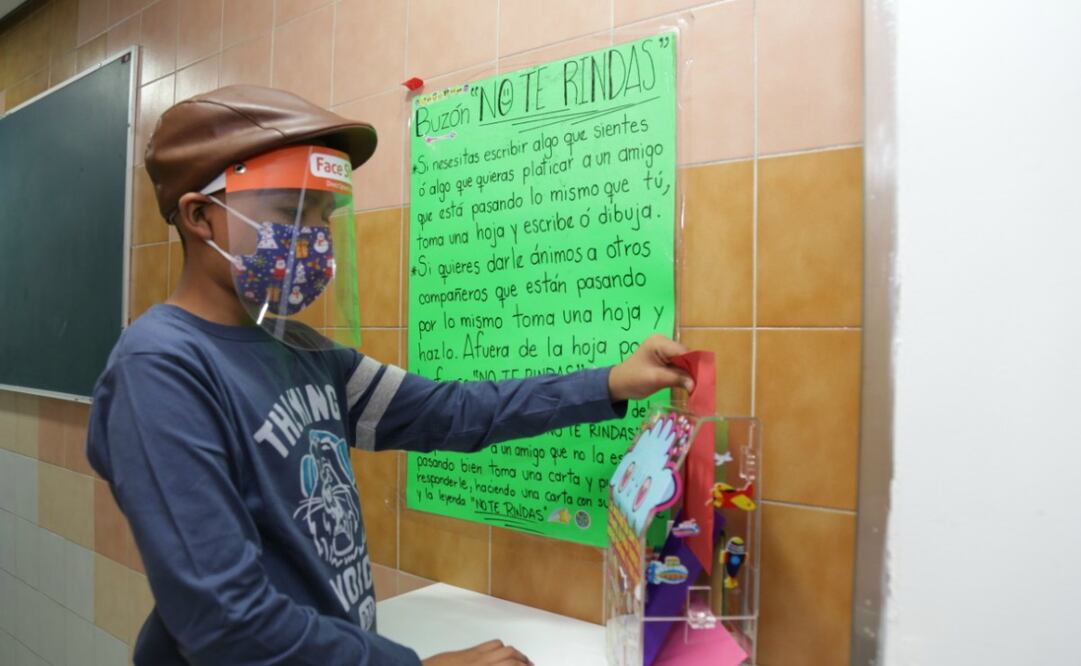 Buzón "NO TE RINDAS"
*Si nesesitas escribir algo que sientes
ó algo que quieras platicar a un amigo
que está pasando lo mismo que tú,
toma una hoja y escribe ó dibuja.
*Si quieres darle ánimos a otros
compañeros que están pasando
por lo mismo toma una hoja y
hazlo. Afuera de la hoja
"NO TE RINDAS"
NO TE RINDAS"
a un amigo que no la
pasando bien toma una carta y
responderle, haciendo una carta con
y la leyenda "NO TE RINDAS"
Face